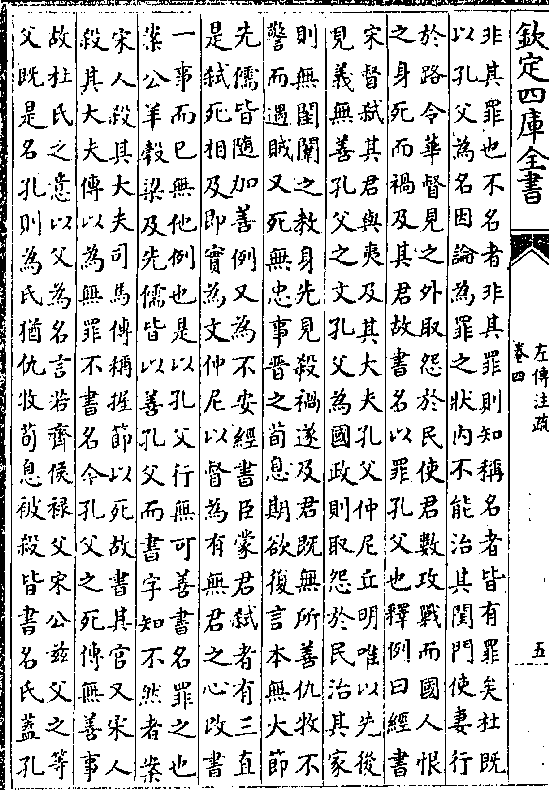 欽定四庫全書
左傳注疏
卷四
五
非其罪也不名者非其罪則知稱名者皆有罪矣杜既
以孔父為名因論為罪之狀内不能治其閨門使妻行
於路令華督見之外取怨於民使君數攻戰而國人恨
之身死而禍及其君故書名以罪孔父也釋例曰經書
宋督弑其君與夷及其大夫孔父仲尼丘明唯以先後
見義無善孔父之文孔父為國政則取怨於民治其家
則無閨闈之教身先見殺禍遂及君既無所善仇牧不
警而遇賊又死無忠事晋之荀息期欲復言本無大節
先儒皆隨加善例又為不安經書臣蒙君弑者有三直
是弑死相及即實為文仲尼以督為有無君之心改書
一事而已無他例也是以孔父行無可善書名罪之也
案公羊榖梁及先儒皆以善孔父而書字知不然者案
宋人殺其大夫司馬傳稱握節以死故書其官又宋人
殺其大夫傳以為無罪不書名今孔父之死傳無善事
故杜氏之意以父為名言若齊侯禄父宋公兹父之等
父既是名孔則為氏猶仇牧荀息被殺皆書名氏蓋孔